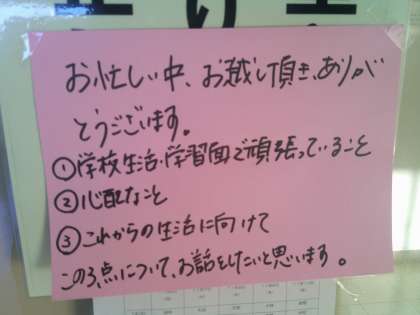 お忙しい中、お越し頂き、ありが
とうございます。
①学校生活・学習面で頑張っていること
②心配なこと
③これからの生活に向けて
この3点について、お話をしたいと思います。